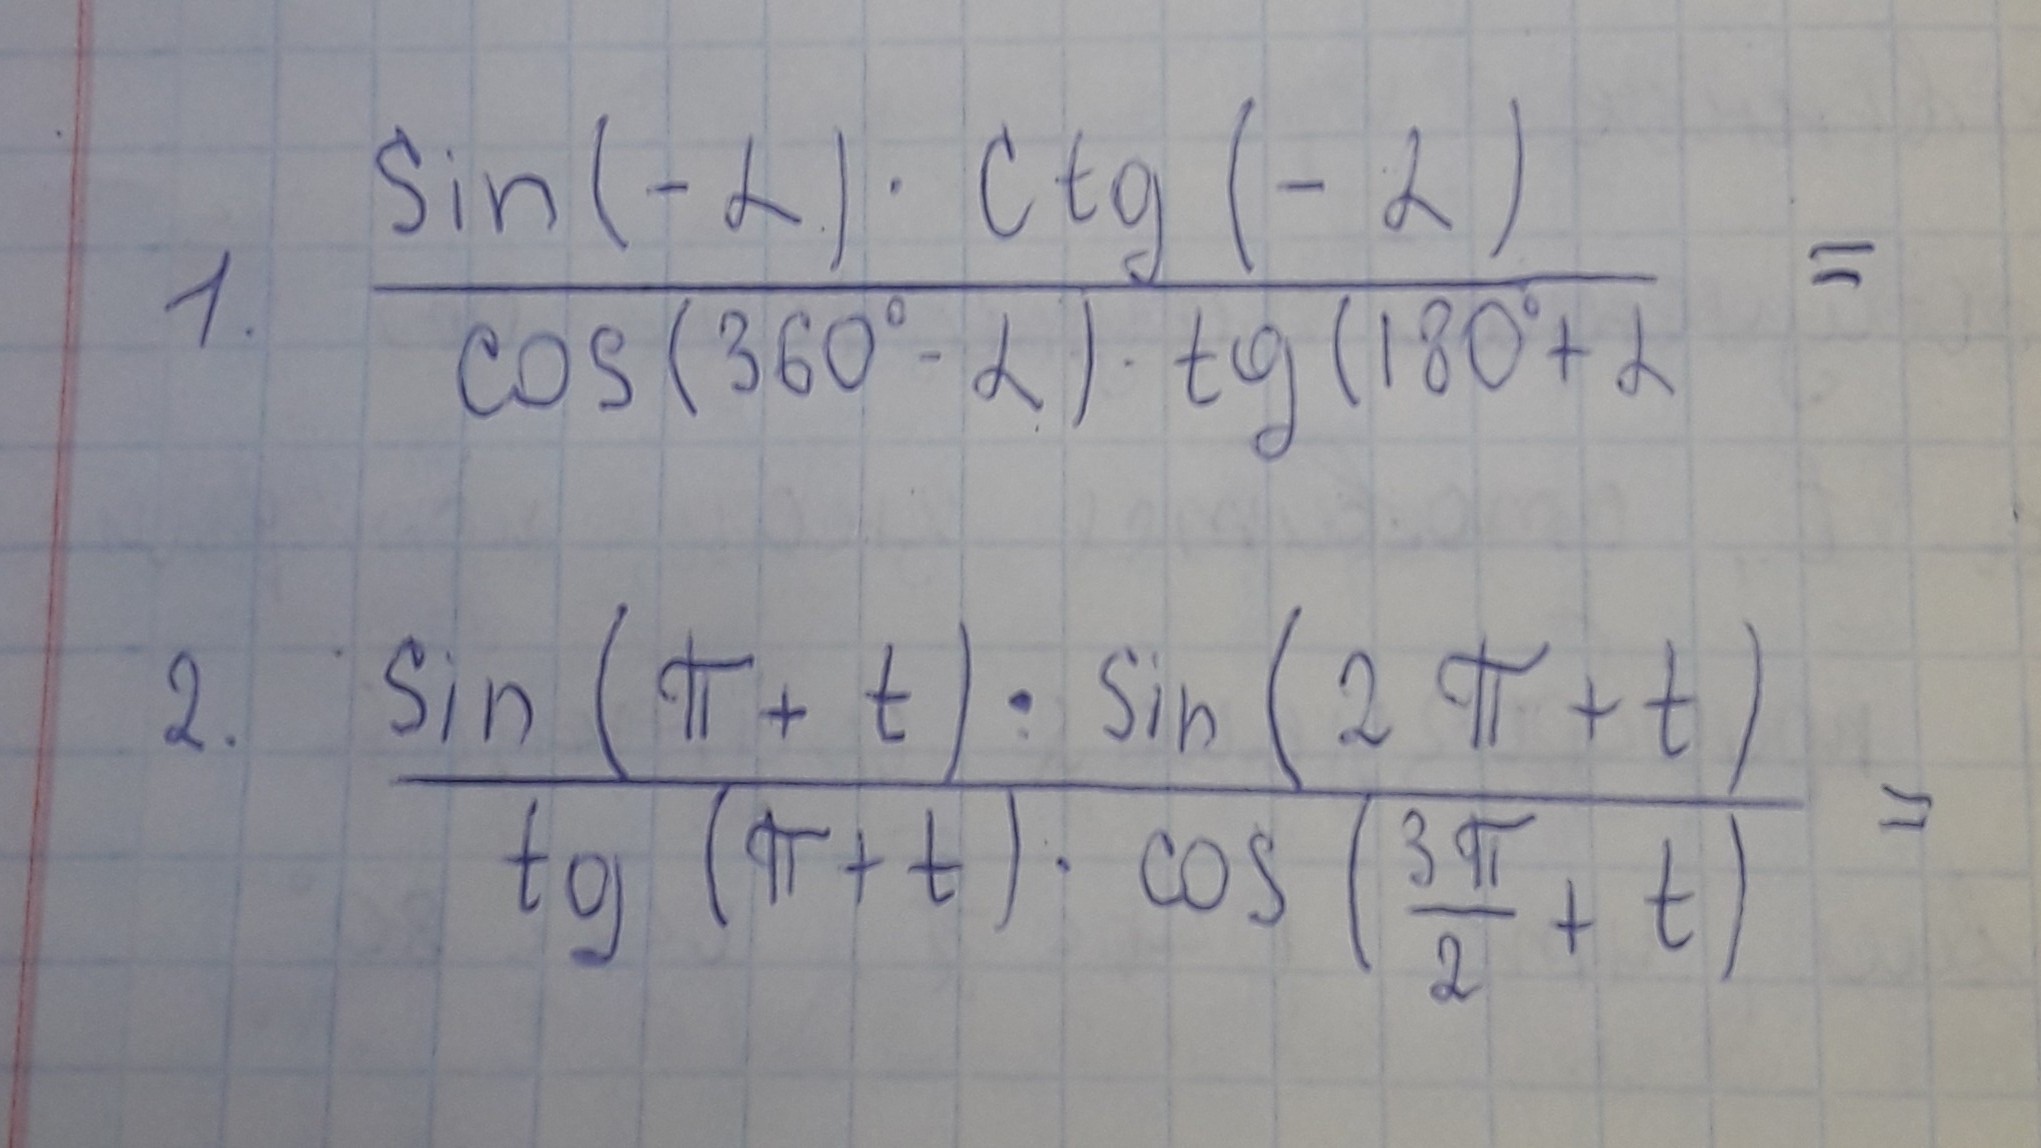 Sin(-α) · Ctg(-α)
1. =
cos(360°-α) · tg(180°+α
Sin(π+t) · Sin(2π+t)
2. =
tg(π+t) · cos(3π/2+t)